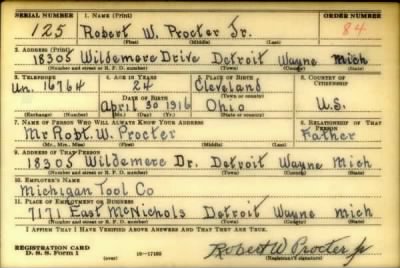 SERIAL NUMBER 1. NAME (Print) ORDER NUMBER
125 Robert W. Procter Jr. 84
(First) (Middle) (Last)
2. ADDRESS (Print)
18305 Wildemere Drive Detroit Wayne Mich
(Number and street or R. F. D. number) (Town) (County) (State)
3. TELEPHONE 4. AGE IN YEARS 5. PLACE OF BIRTH 6. COUNTRY OF CITIZENSHIP
Un. 16764 24 Cleveland
DATE OF BIRTH (Town or county)
April 30 1916 Ohio U.S.
(Exchange) (Number) (Mo.) (Day) (Yr.) (State or country)
7. NAME OF PERSON WHO WILL ALWAYS KNOW YOUR ADDRESS 8. RELATIONSHIP OF THAT PERSON
Mr Robt. W. Procter Father
(Mr., Mrs., Miss) (First) (Middle) (Last)
9. ADDRESS OF THAT PERSON
18305 Wildemere Dr. Detroit Wayne Mich
(Number and street or R. F. D. number) (Town) (County) (State)
10. EMPLOYER'S NAME
Michigan Tool Co
11. PLACE OF EMPLOYMENT OR BUSINESS
7171 East McNichols Detroit Wayne Mich
(Number and street or R. F. D. number) (Town) (County) (State)
I AFFIRM THAT I HAVE VERIFIED ABOVE ANSWERS AND THAT THEY ARE TRUE.
REGISTRATION CARD
D. S. S. Form 1 (over) Robert W Procter Jr
(Registrant's signature)